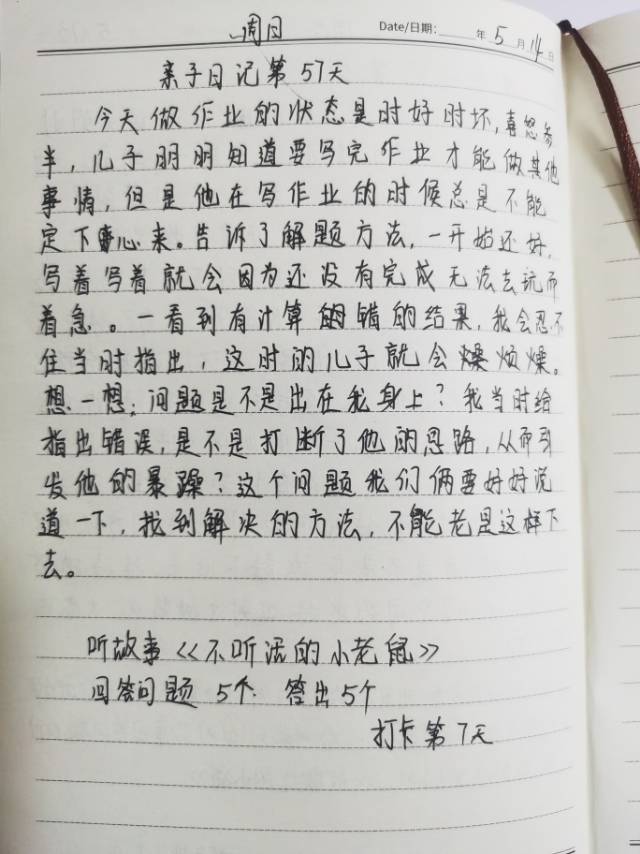 周日 Date/日期: 年 5 月 14 日
亲子日记第57天
今天做作业的状态是时好时坏,喜怒参
半,儿子明明知道要写完作业才能做其他
事情,但是他在写作业的时候总是不能
定下心来。告诉了解题方法,一开始还好,
写着写着就会因为还没有完成无法去玩而
着急。一看到有计算的错的结果,我会忍不
住当时指出,这时的儿子就会燥烦燥。
想一想,问题是不是出在我身上?我当时给
指出错误,是不是打断了他的思路,从而引
发他的暴躁?这个问题我们俩要好好说
道一下,找到解决的方法,不能老是这样下
去。
听故事《不听话的小老鼠》
回答问题 5个. 答出5个
打卡第7天